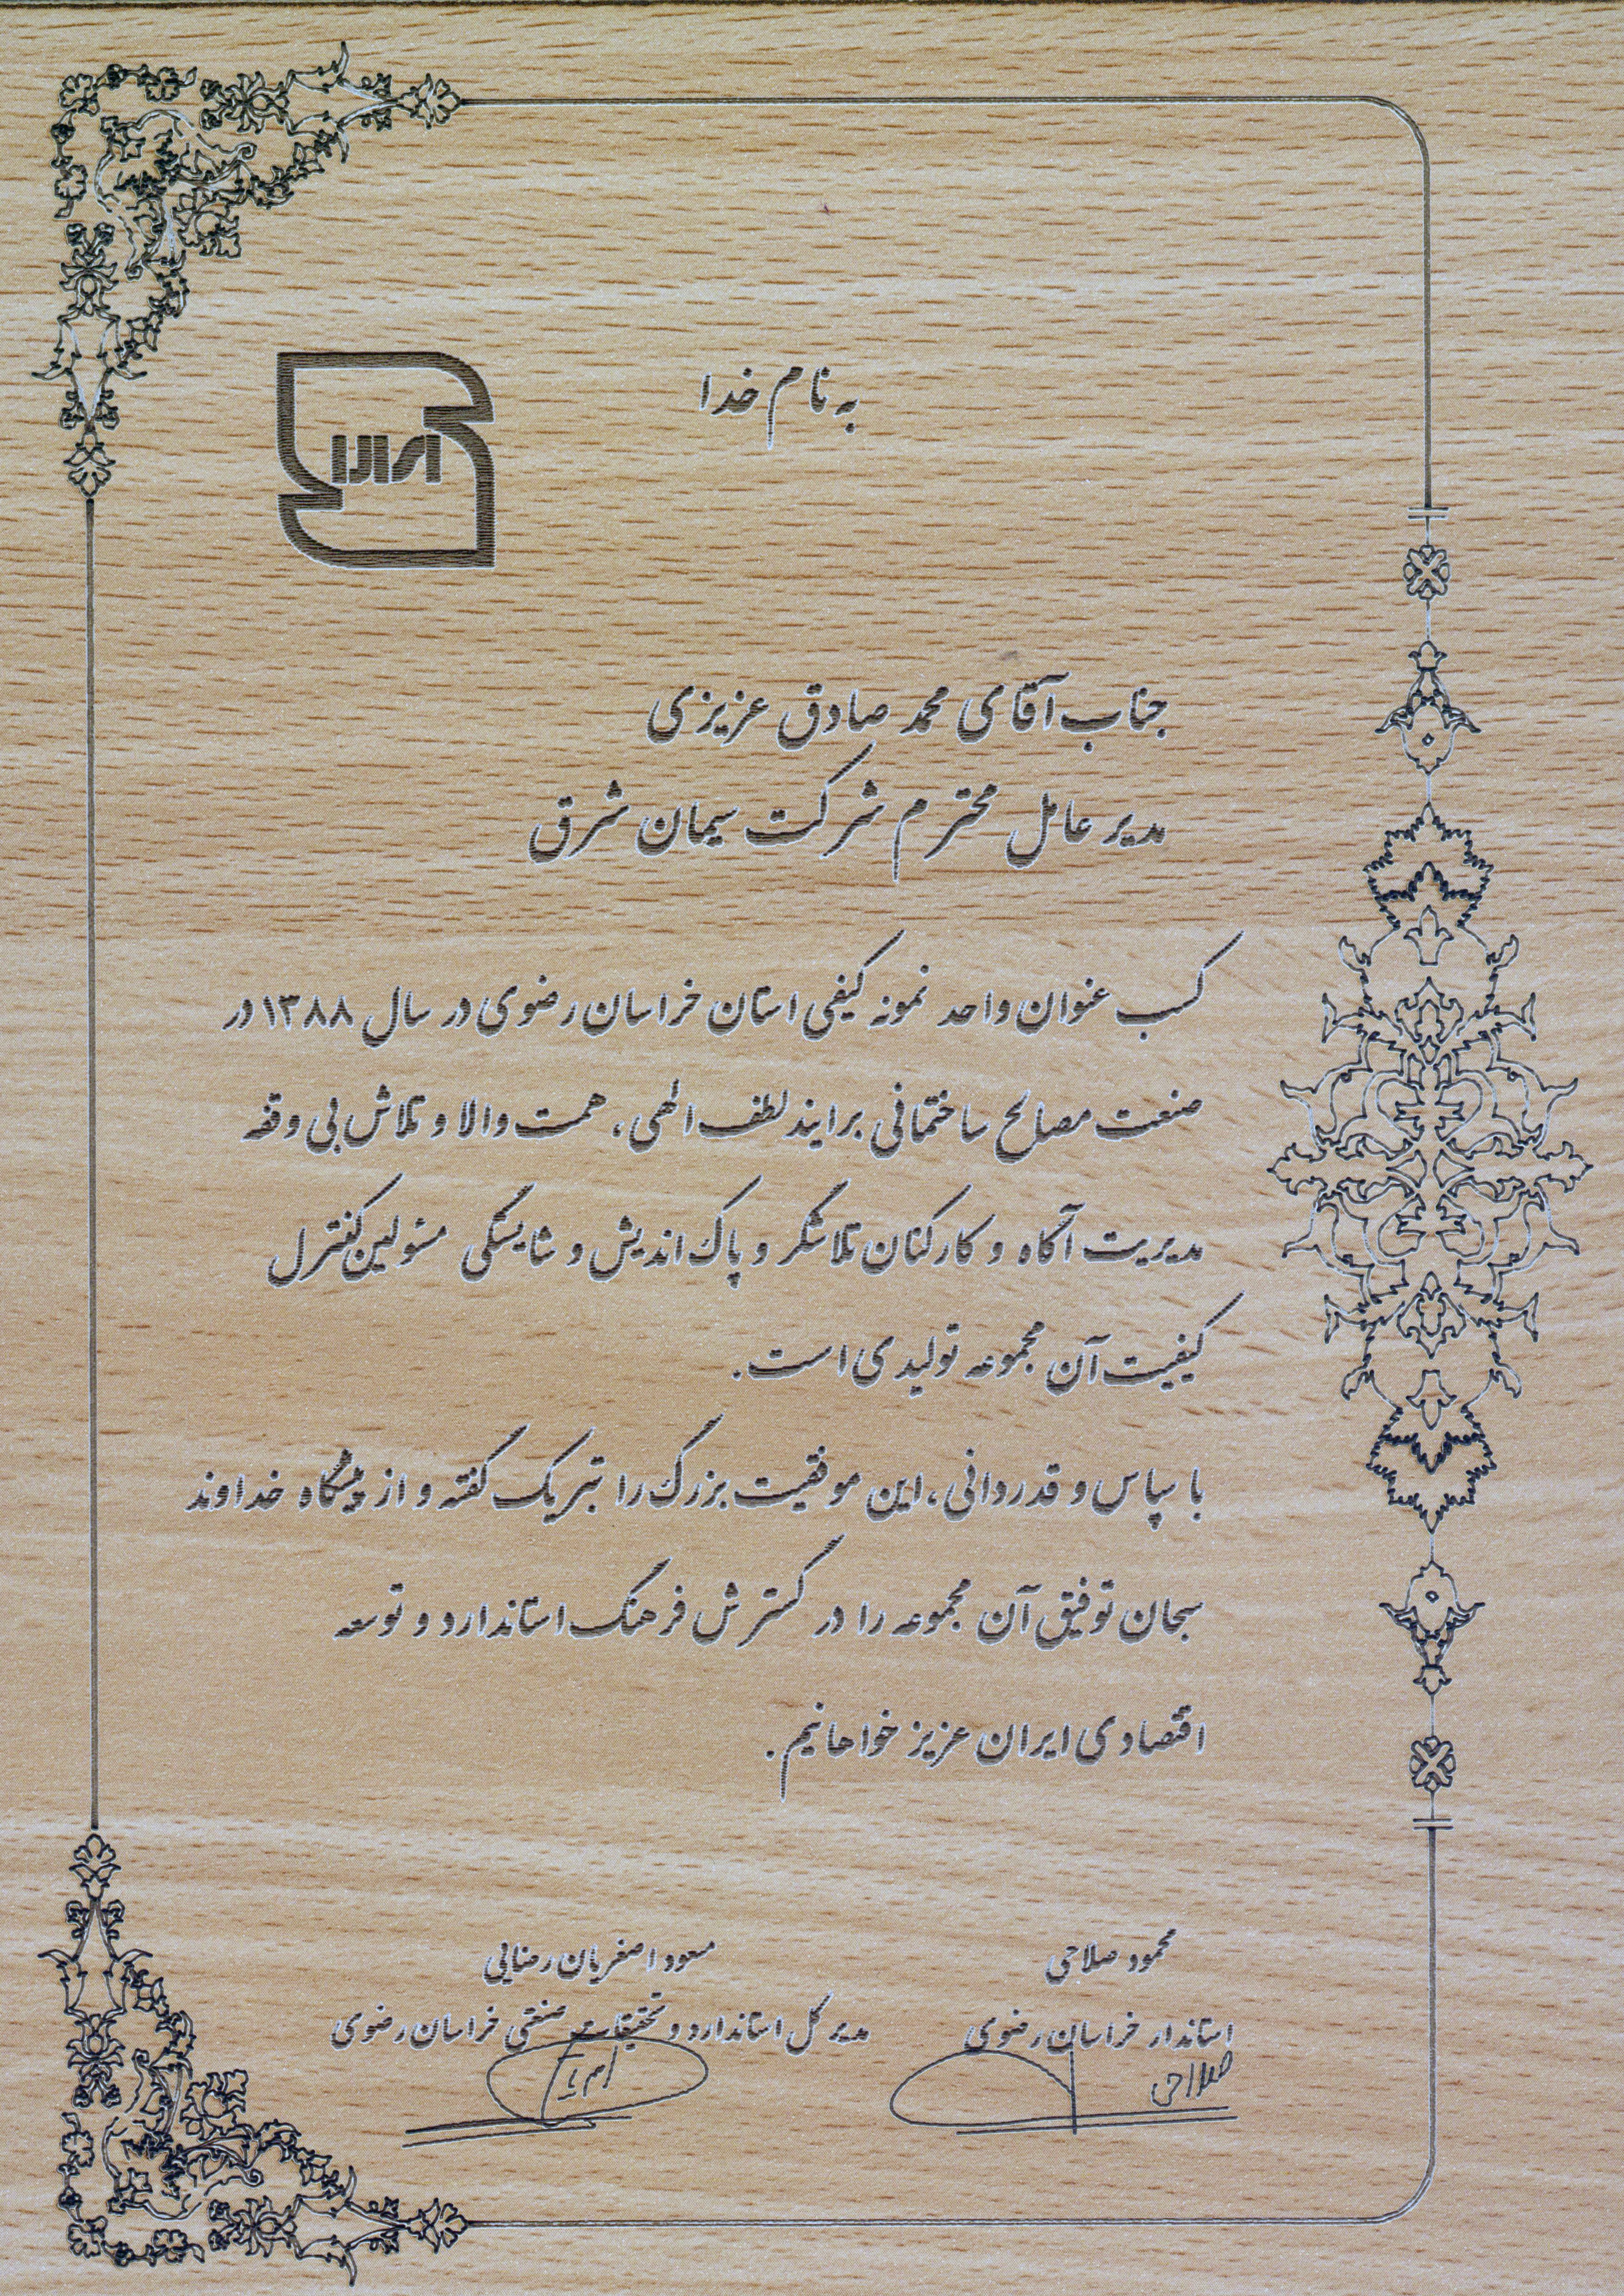 به نام خدا
ایران
جناب آقای محمد صادق عزیزی
مدیر عامل محترم شرکت سیمان شرق
کسب عنوان واحد نمونه کیفی استان خراسان رضوی در سال ۱۳۸۸ در
صنعت مصالح ساختمانی برایند لطف الهی، همت والا و تلاش بی وقفه
مدیریت آگاه و کارکنان تلاشگر و پاک اندیش و شایستگی مسئولین کنترل
کیفیت آن مجموعه تولیدی است.
با سپاس و قدردانی، این موفقیت بزرگ را تبریک گفته و از پیشگاه خداوند
سبحان توفیق آن مجموعه را در گسترش فرهنگ استاندارد و توسعه
اقتصادی ایران عزیز خواهانیم.
محمود صلاحی
استاندار خراسان رضوی
صلاحی
مسعود اصغریان رضایی
مدیر کل استاندارد و تحقیقات صنعتی خراسان رضوی